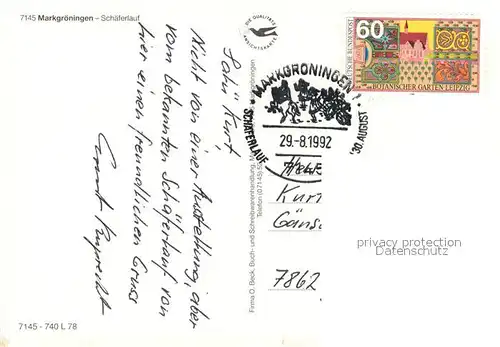 7145 Markgröningen – Schäferlauf
DIE QUALITÄTS
ANSICHTSKARTE
60
DEUTSCHE BUNDESPOST
BOTANISCHER GARTEN LEIPZIG
MARKGRÖNINGEN 1
SCHÄFERLAUF
30. AUGUST
29.-8.1992
Kurt,
Nicht von einer Ausstellung, aber
vom bekannten Schäferlauf von
hier einen freundlichen Gruss
Firma D. Beck, Buch- und Schreibwarenhandlung,
Telefon (07145)
Herrn
Kur
Gäns
7862
privacy protection
Datenschutz
7145 - 740 L 78